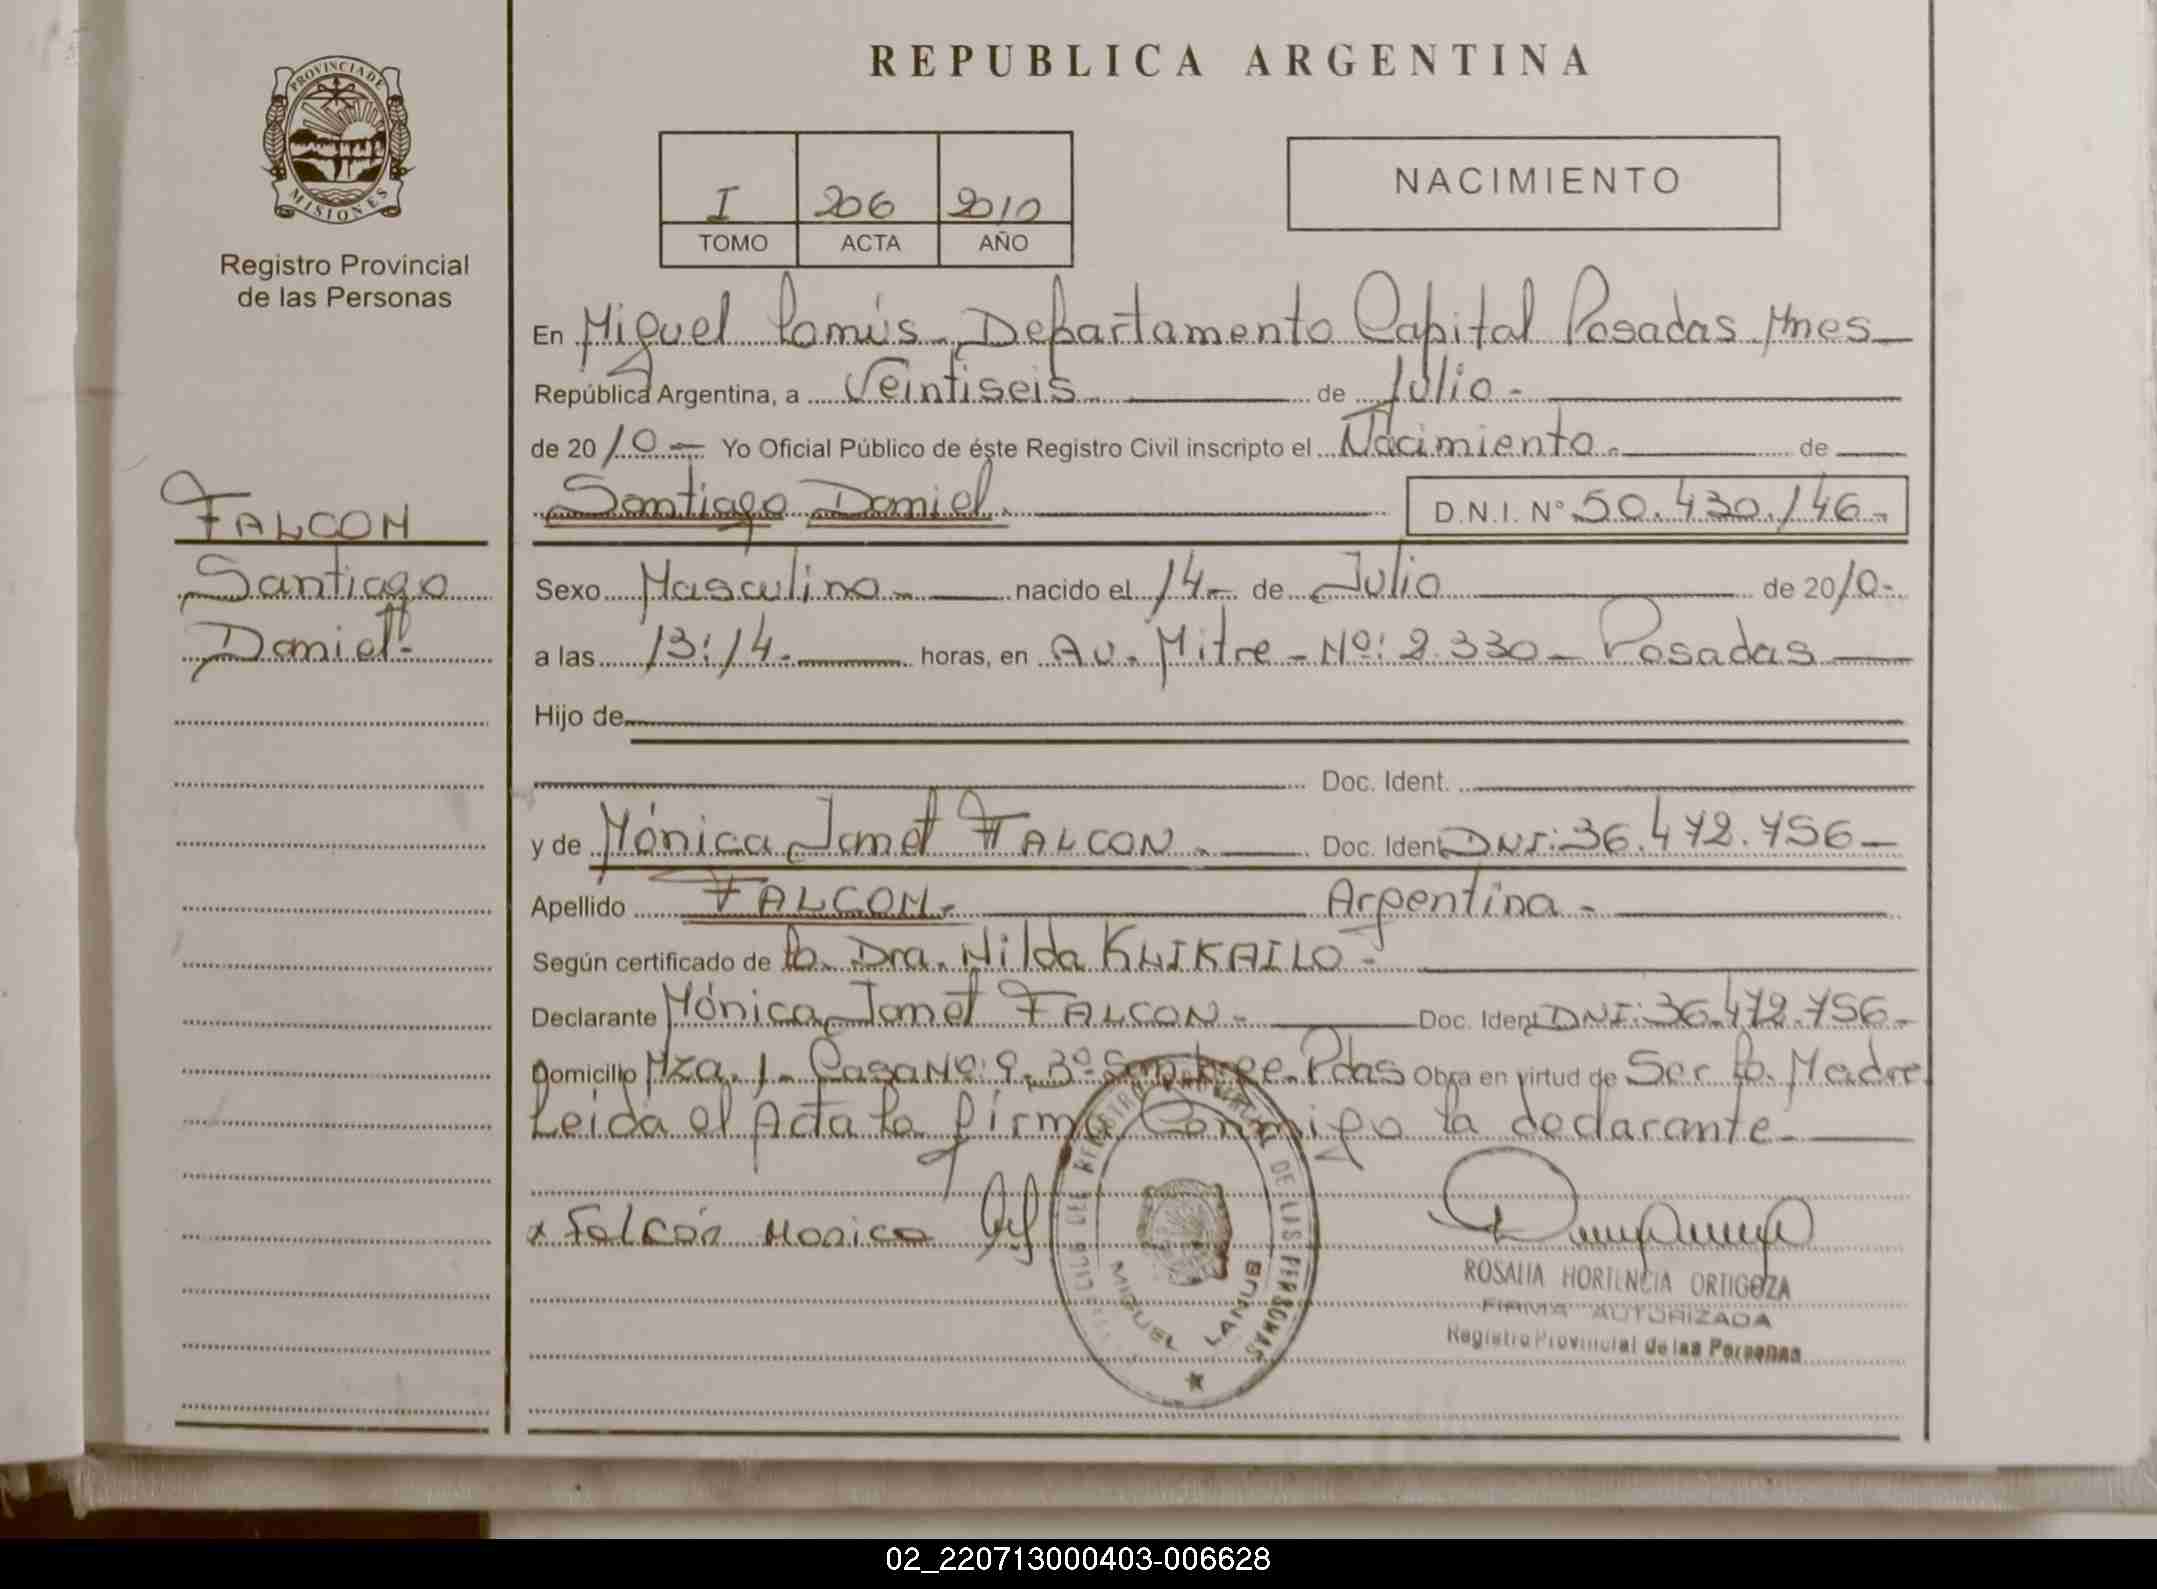 REPUBLICA ARGENTINA
PROVINCIA DE
MISIONES
Registro Provincial
de las Personas
I 206 2010
TOMO ACTA AÑO
NACIMIENTO
En Miguel Lanús - Departamento Capital Posadas Mnes
República Argentina, a Veintiseis de Julio -
de 2010 - Yo Oficial Público de éste Registro Civil inscripto el Nacimiento - de
Santiago Daniel. D.N.I. Nº 50.430.146 -
FALCON
Santiago
Daniel -
Sexo Masculino - nacido el 14 - de Julio de 2010 -
a las 13:14 - horas, en Av. Mitre - Nº: 2.330 - Posadas
Hijo de
Doc. Ident.
y de Mónica Janet FALCON - Doc. Ident DNI: 36.472.756 -
Apellido FALCON - Argentina -
Según certificado de la Dra. Nilda KLIKAILO -
Declarante Mónica Janet FALCON - Doc. Ident DNI: 36.472.756 -
Domicilio Mza. 1 - Casa Nº: 9 - 3º Pdas Obra en virtud de Ser la Madre
Leida el Acta la firma Conmigo la declarante -
x Falcón Monica
REGISTRO DE LAS PERSONAS
MIGUEL LANUS
ROSALIA HORTENCIA ORTIGOZA
FIRMA AUTORIZADA
Registro Provincial de las Personas
02_220713000403-006628